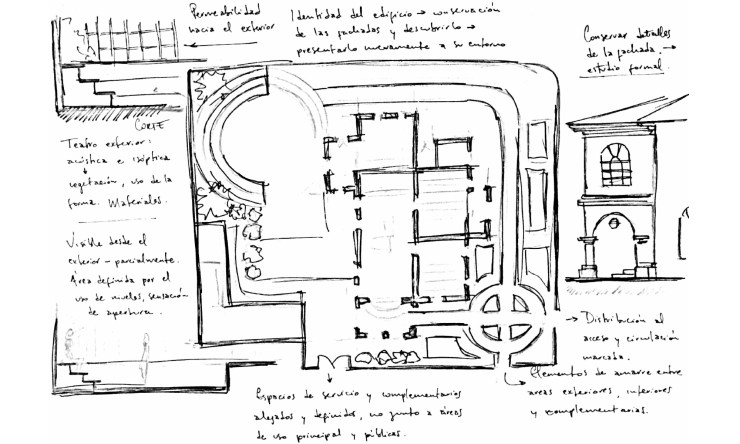 Permeabilidad
hacia el exterior
Identidad del edificio → conservación
de las fachadas y descubrirlo →
presentarlo nuevamente a su entorno
Conservar detalles
de la fachada, →
estudio formal
CORTE
Teatro exterior:
acústica e isóptica
vegetación, uso de la
forma. Materiales.
Visible desde el
exterior – parcialmente.
Área definida por el
uso de niveles, sensación
de apertura.
→ Distribución al
acceso y circulación
marcada.
Elementos de amarre entre
areas exteriores, interiores
y complementarias.
Espacios de servicio y complementarios
alejados y definidos, no junto a áreas
de uso principal y públicas.